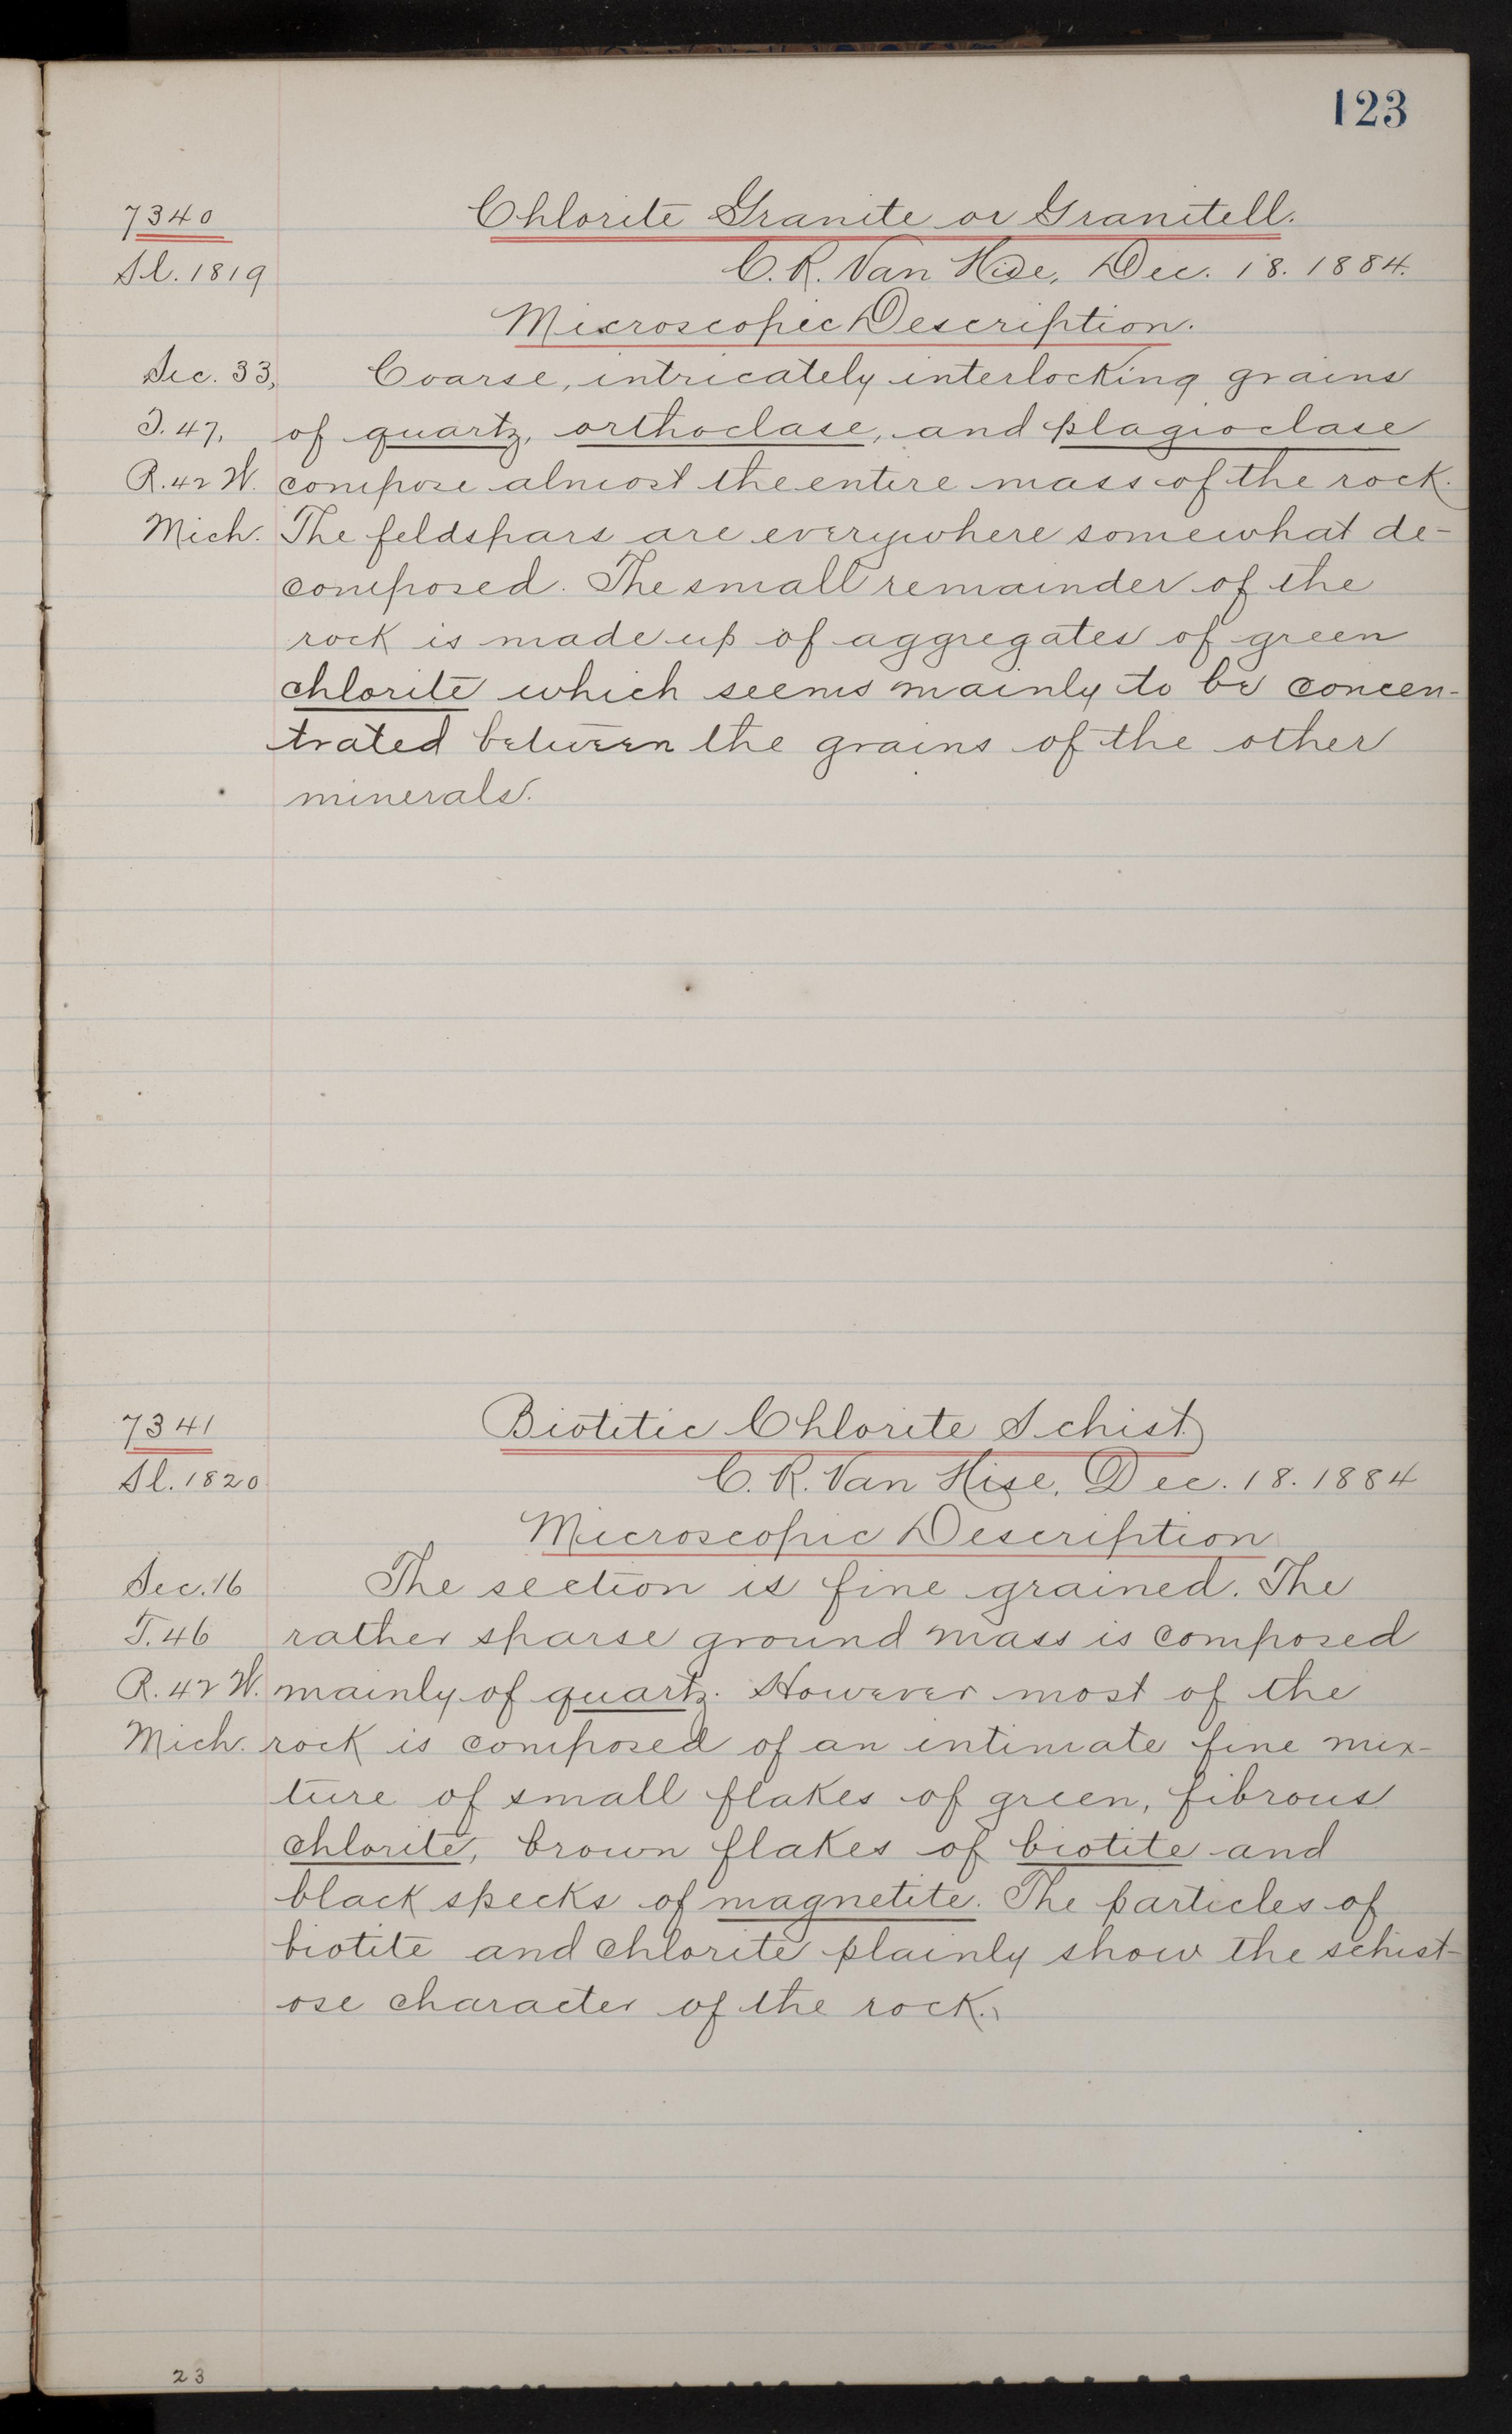 123
7340
Chlorite Granite or Granitell.
Sl. 1819
C. R. Van Hise, Dec. 18. 1884.
Microscopic Description.
Sec. 33, Coarse, intricately interlocking grains
T. 47, of quartz, orthoclase, and plagioclase
R. 42 W. compose almost the entire mass of the rock.
Mich. The feldspars are everywhere somewhat de-
composed. The small remainder of the
rock is made up of aggregates of green
chlorite which seems mainly to be concen-
trated between the grains of the other
minerals.
7341
Biotitic Chlorite Schist
Sl. 1820
C. R. Van Hise, Dec. 18. 1884
Microscopic Description
Sec. 16 The section is fine grained. The
T. 46 rather sparse ground mass is composed
R. 42 W. mainly of quartz. However most of the
Mich. rock is composed of an intimate fine mix-
ture of small flakes of green, fibrous
chlorite, brown flakes of biotite and
black specks of magnetite. The particles of
biotite and chlorite plainly show the schist-
ose character of the rock.
23